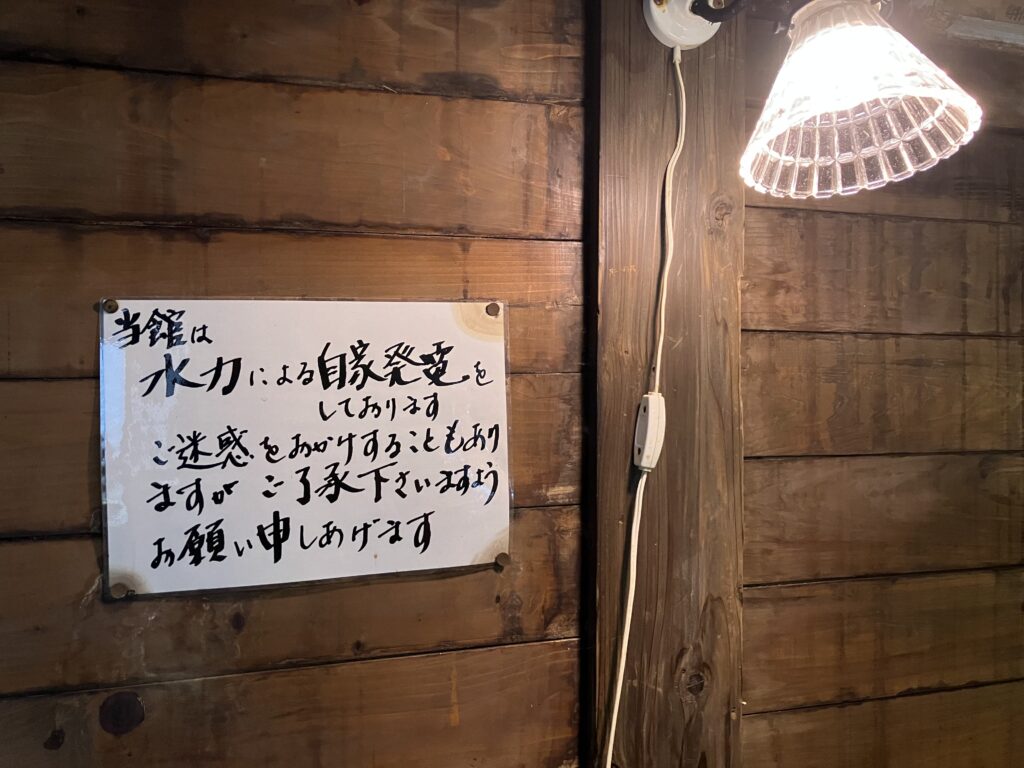 当館は
水力による自家発電を
しております
ご迷惑をおかけすることもあり
ますが ご了承下さいますよう
お願い申しあげます